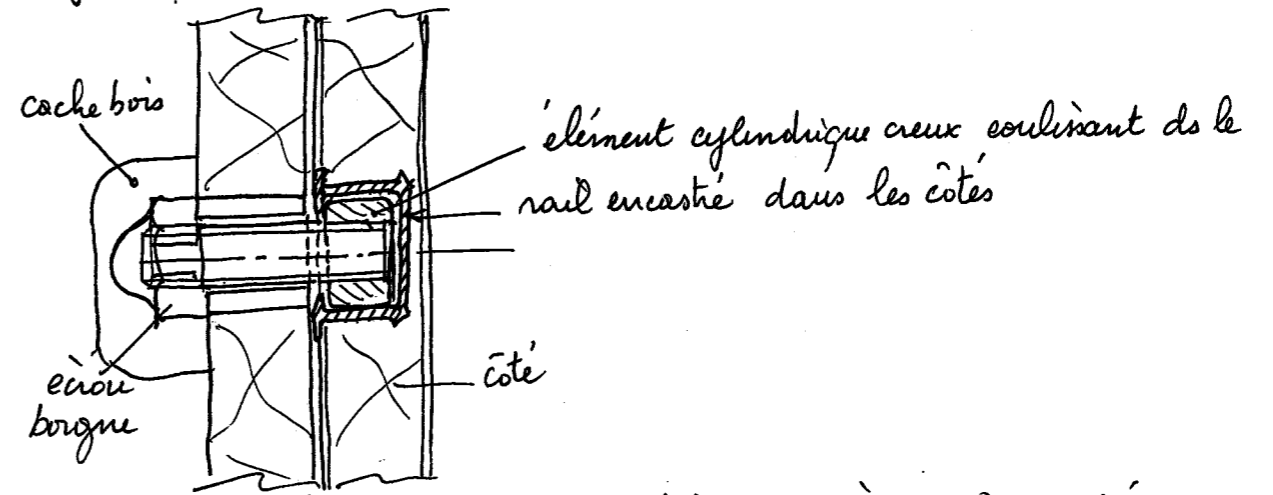 cache bois
élément cylindrique creux coulissant ds le
rail encastré dans les côtés
côté
écrou
borgne